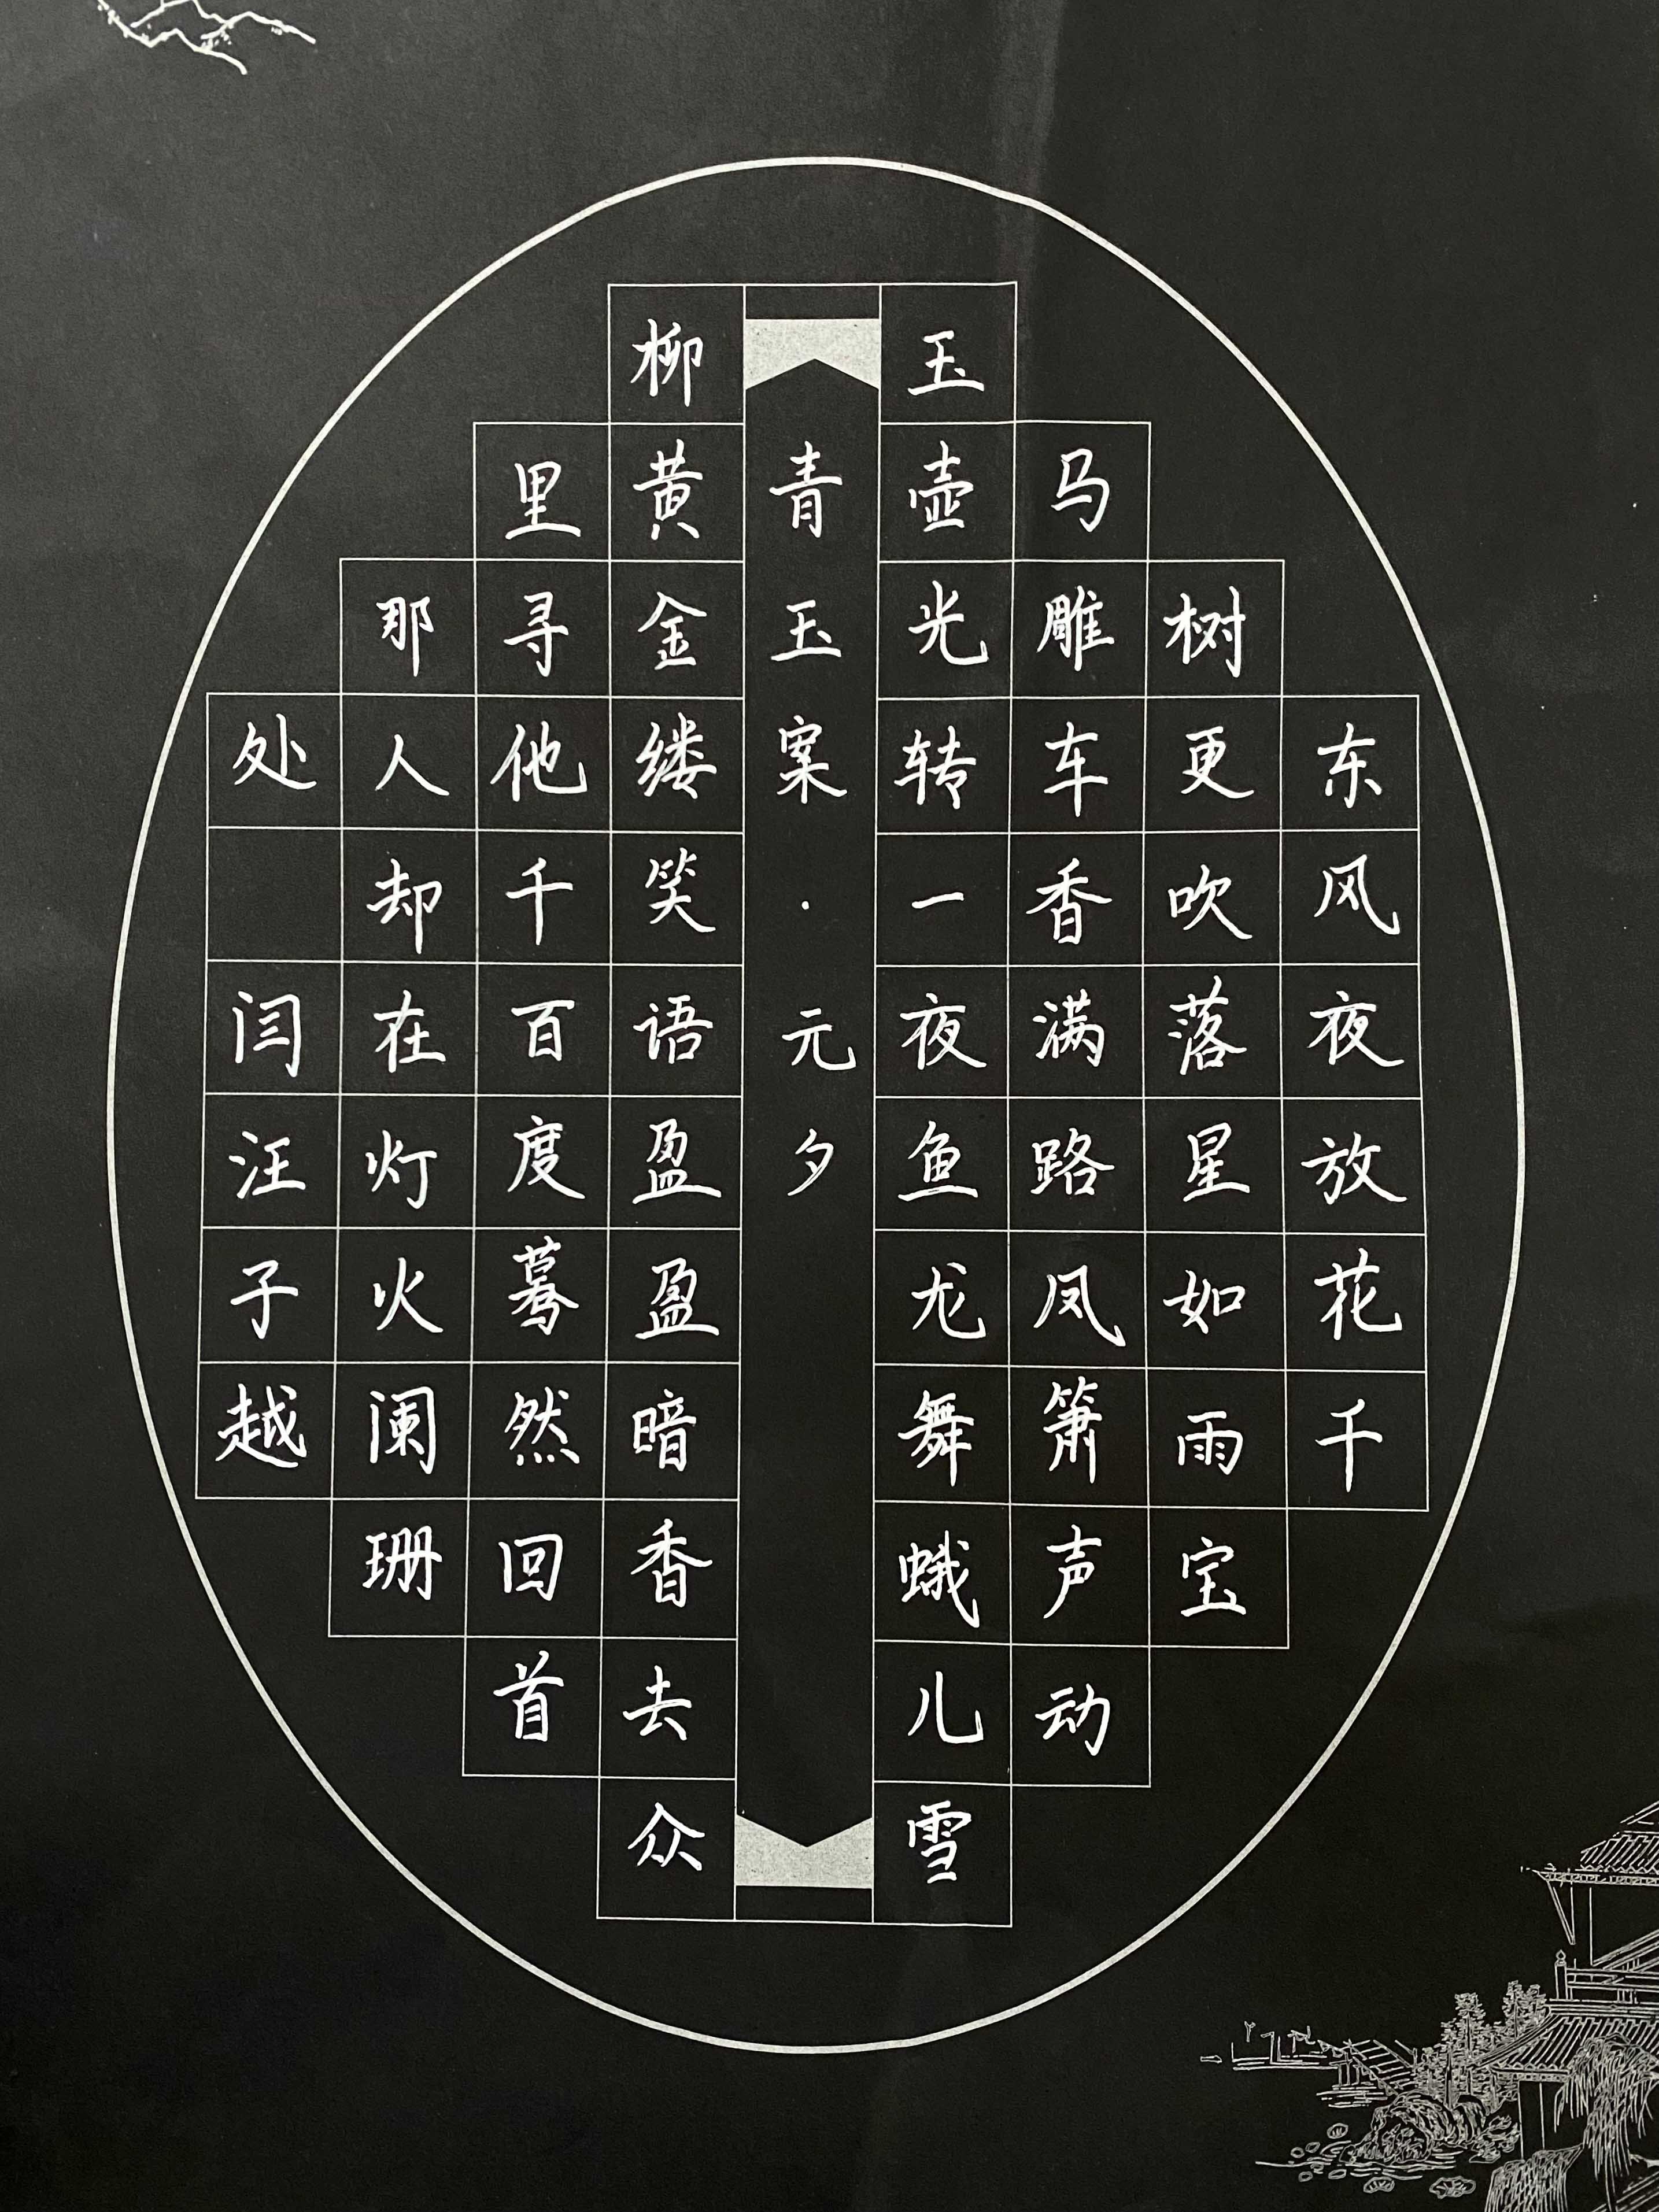 青玉案·元夕
东风夜放花千
树更吹落星如雨宝
马雕车香满路凤箫声动
玉壶光转一夜鱼龙舞蛾儿雪
柳黄金缕笑语盈盈暗香去众
里寻他千百度蓦然回首
那人却在灯火阑珊
处 闫汪子越